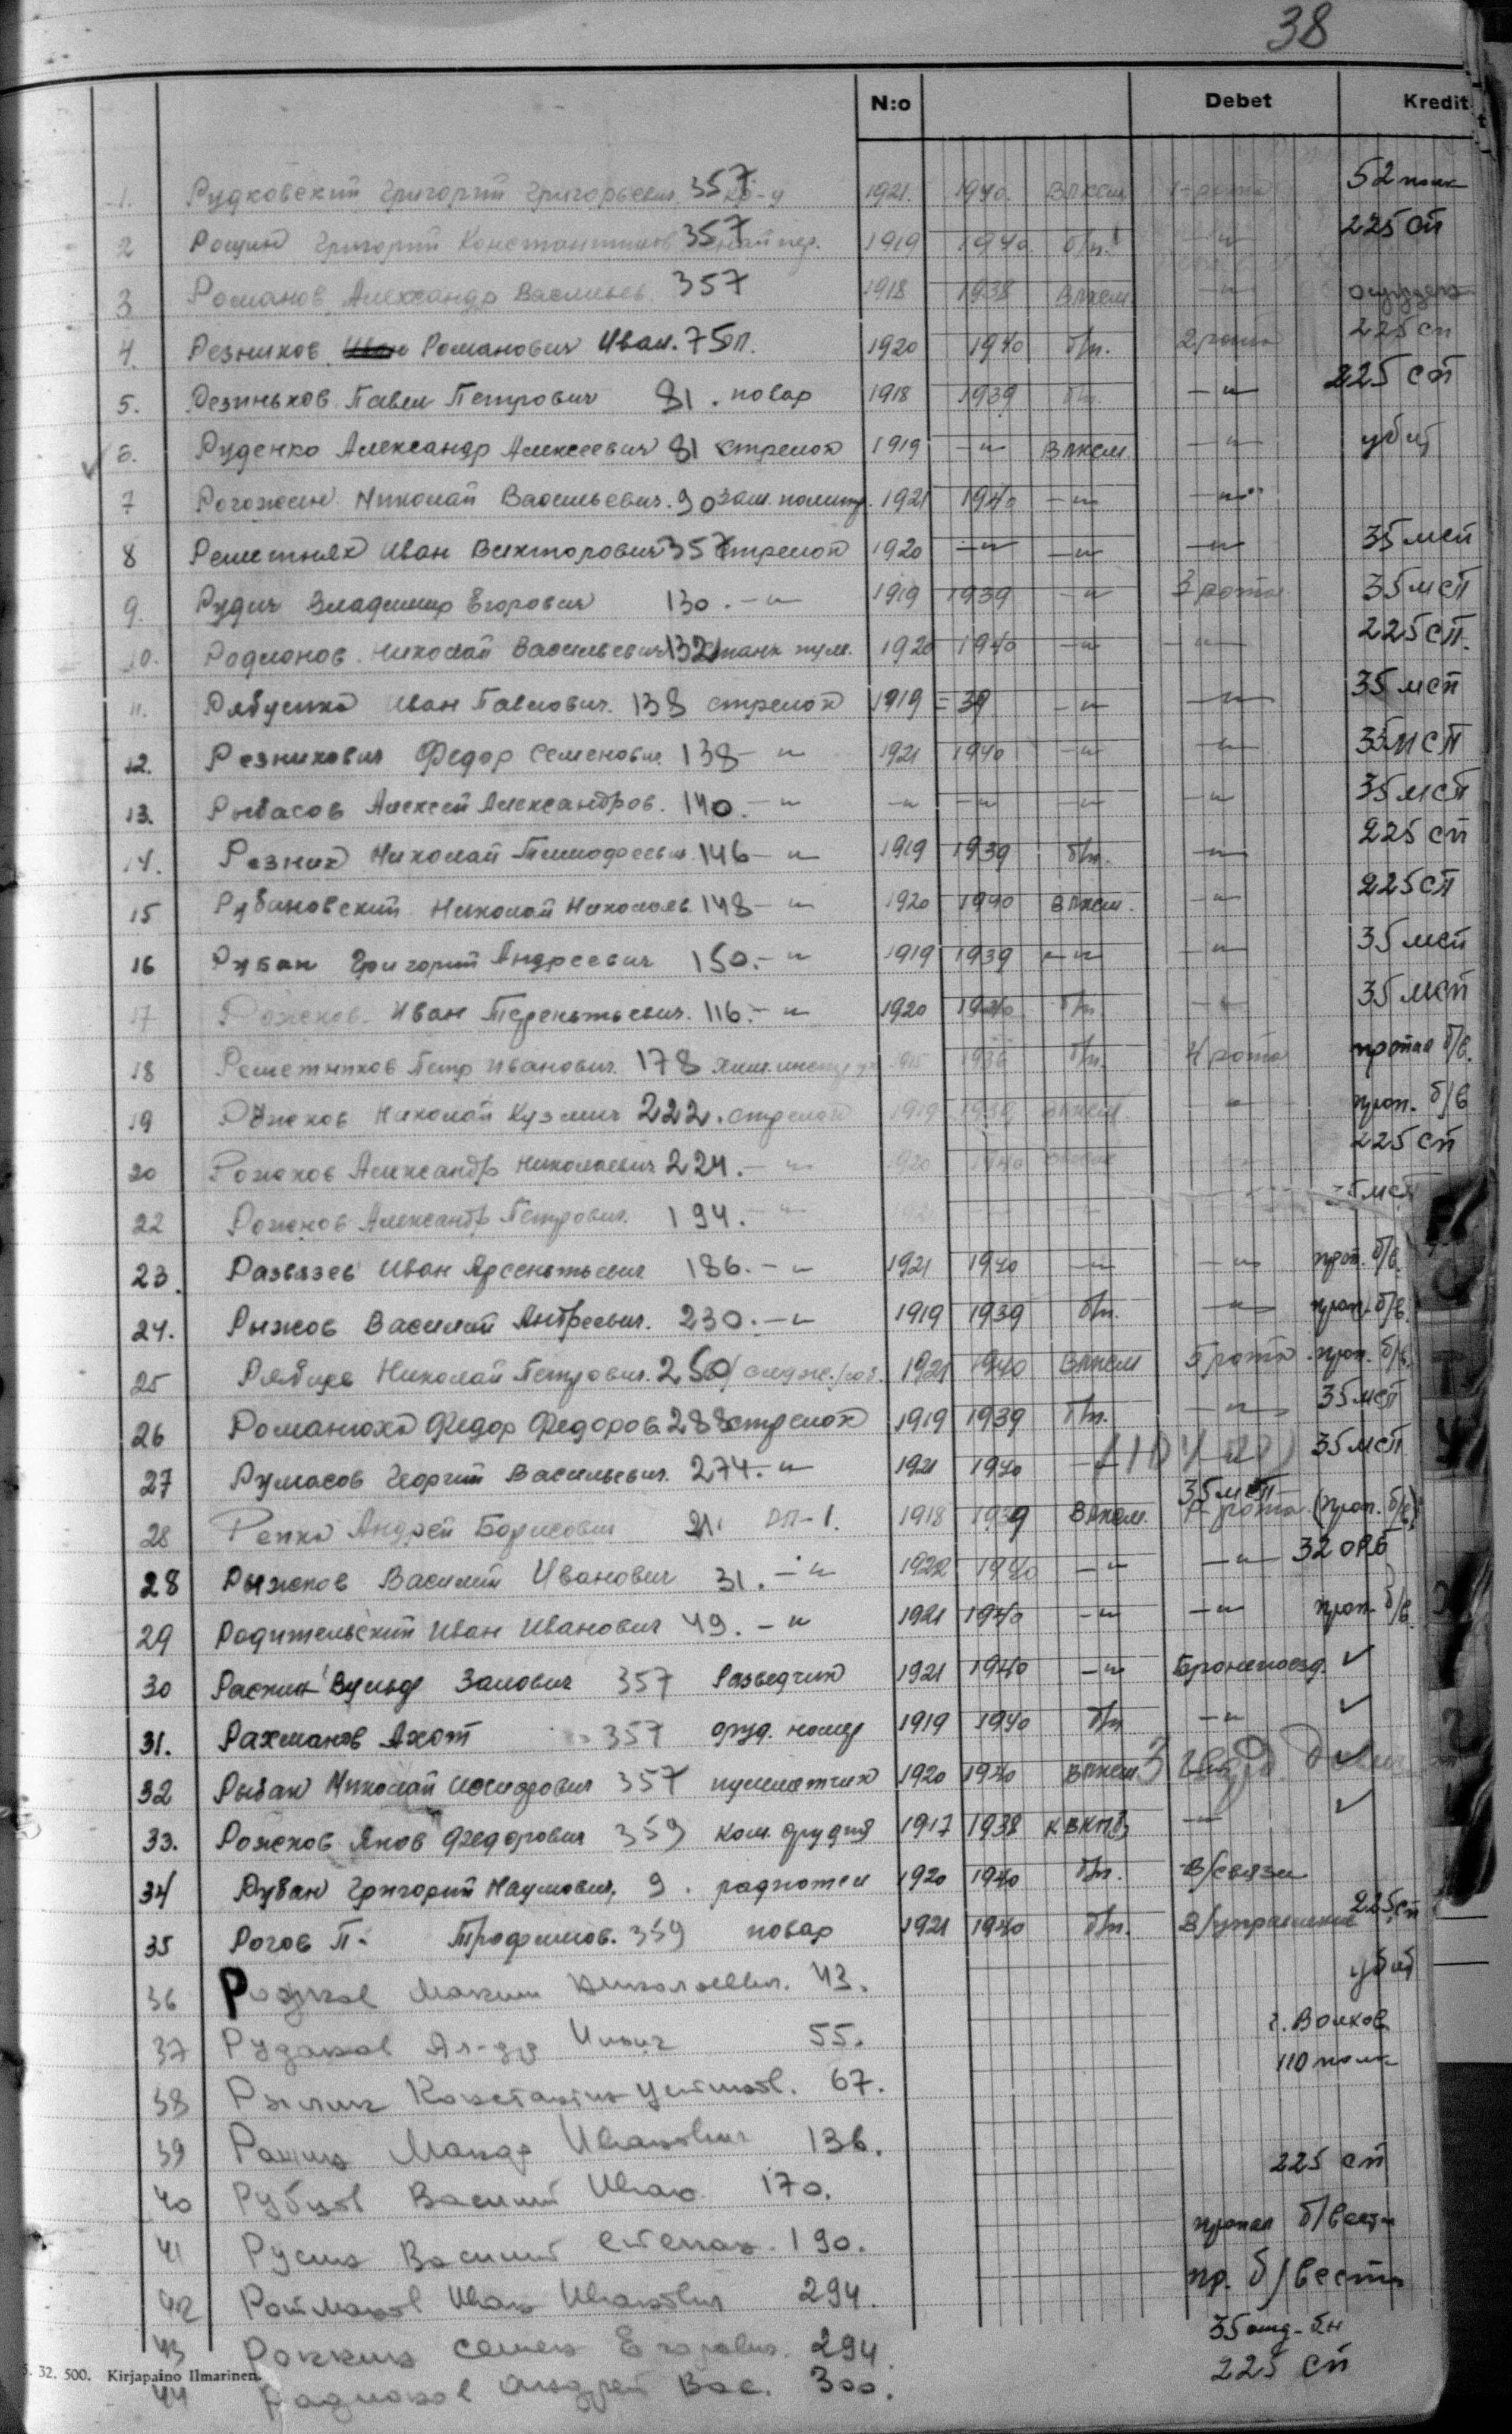 38
N:o Debet Kredit
1. Рудковский Григорий Григорьевич 357 1921. 1940. ВЛКСМ 1-рота 52 полк
2 Рощин Григорий Константинов 357 1919 1940. б/п. —"— 225 сп
3 Романов Александр Васильев. 357 1918 1938 ВЛКСМ —"—
4. Резников Романович Иван. 75 1920 1940 б/п. 2 рота 225 сп
5. Резиньков Павел Петрович 81. повар 1918 1939 б/п. —"— 225 сп
6. Руденко Александр Алексеевич 81 стрелок 1919 —"— ВЛКСМ —"— убит
7 Рогожин Николай Васильевич. 90 зам. политр. 1921 1940 —"— —"—
8 Решетняк Иван Викторович 357 стрелок 1920 —"— —"— —"— 35 мсп
9. Рудич Владимир Егорович 130. —"— 1919 1939 —"— 3 рота 35 мсп
10. Родионов. Николай Васильевич 132 станк пул. 1920 1940 —"— —"— 225 сп.
11. Рябушко Иван Павлович. 138 стрелок 1919 = 39 —"— —"— 35 мсп
12. Резникович Федор Семенович 138 —"— 1921 1940 —"— —"— 35 мсп
13. Рыбасов Алексей Александров. 140. —"— —"— —"— —"— —"— 35 мсп
14. Резник Николай Тимофеевич. 146 —"— 1919 1939 б/п. —"— 225 сп
15 Рубановский Николай Николаев. 148 —"— 1920 1940 ВЛКСМ. —"— 225 сп
16 Рубан Григорий Андреевич 150. —"— 1919 1939 —"— —"— 35 мсп
17 Рожков. Иван Терентьевич. 116. —"— 1920 1940 б/п —"— 35 мсп
18 Решетников Петр Иванович. 178 хим. 1915 1936 б/п. 4 рота пропал б/в.
19 Николай Кузмич 222. стрелок 1919 1939 ВЛКСМ —"— проп. б/в
20 Рожков Александр Николаевич 224. —"— 1920 1940 225 сп
22 Рожнов Александр Петрович. 194. —"— мсп
23. Развязев Иван Арсентьевич 186. —"— 1921 1940 —"— —"— проп. б/в.
24. Рыжов Василий Андреевич. 230. —"— 1919 1939 б/п. —"— проп. б/в.
25 Николай Петрович. 250 1921 1940 ВЛКСМ 5 рота. проп. б/в.
26 Романюха Федор Федоров. 288 стрелок 1919 1939 б/п. —"— 35 мсп
27 Румасов Георгий Васильевич. 274. —"— 1921 1940 35 мсп
35 мсп
28 Репка Андрей Борисович 21. ДП-1. 1918 1939 ВЛКСМ. рота (проп. б/в)
28 Рыжков Василий Иванович 31. —"— 1922 1940 —"— —"— 32 орб
29 Родительский Иван Иванович 49. —"— 1921 1940 —"— —"— проп. б/в.
30 Раскин Вульф Залович 357 Разведчик 1921 1940 —"— Бронепоезд. ✓
31. Рахманов Ахот 357 оруд. номер 1919 1940 б/п —"— ✓
32 Рыбак Николай Исидорович 357 пулеметчик 1920 1940 ВЛКСМ 3
33. Рожков Яков Федорович 359 ком. орудия 1917 1938 КВКП(б) —"— ✓
34 Рубан Григорий Наумович. 9. радиотел 1920 1940 б/п. В/связи
35 Рогов П. Трофимов. 359 повар 1921 1940 б/п. В/управление 225 сп
36 Максим Николаевич. 43. убит
37 Рудаков Ал-др Ильич 55. г. Волхов
38 Константин 67. 110 полк
39 Иванович 136.
40 Рубцов Василий Иван. 170. 225 сп
41 Русин Василий Степан. 190. пропал б/вести
42 Ройтманов Иван Иванович 294. пр. б/вести
43 Семен Егорович. 294. 35 отд-бн
44 Радионов Андрей Вас. 300. 225 сп
32. 500. Kirjapaino Ilmarinen.